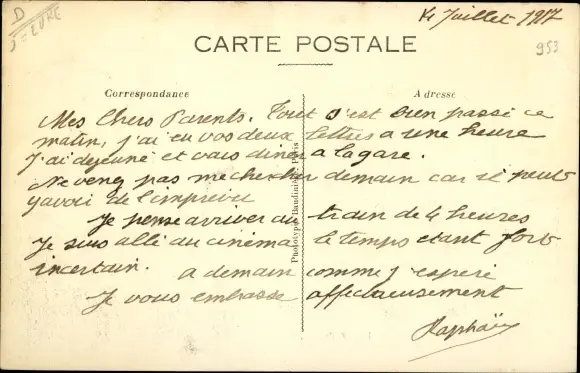 D
EURE
14 Juillet 1917
CARTE POSTALE
953
Correspondance
Adresse
Mes Chers Parents. Tout s'est bien passé ce
matin, j'ai eu vos deux lettres a une heure
J'ai dejeuné et vais diner a la gare.
Ne venez pas me chercher demain car il peut
y avoir de l'imprevu
Je pense arriver au train de 4 heures
Je suis allé au cinéma le temps etant fort
incertain. a demain comme j'espere
Je vous embrasse affectueusement
Raphaël
Phototypie